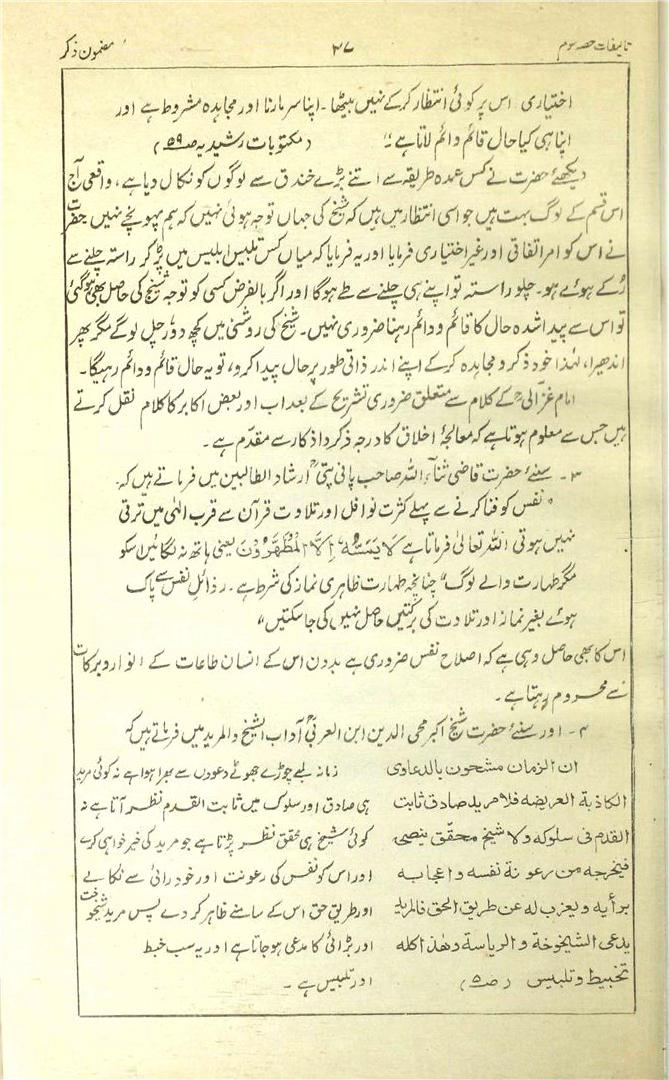 تالیفات حصہ سوم ۳۷ مضمون ذکر
اختیاری اس پر کوئی انتظار کرکے نہیں بیٹھا۔ اپنا سر مارنا اور مجاہدہ مشروط ہے اور
اپنا ہی کیا حال قائم و دائم لاتا ہے" (مکتوبات رشیدیہ صـ۵۹)
دیکھئے حضرت نے کس عمدہ طریقہ سے اتنے بڑے خندق سے لوگوں کو نکال دیا ہے، واقعی آج
اس قسم کے لوگ بہت ہیں جو اسی انتظار میں ہیں کہ شیخ کی جہاں توجہ ہوئی نہیں کہ ہم پہونچے نہیں حضرت
نے اس کو امر اتفاقی اور غیر اختیاری فرمایا اور یہ فرمایا کہ میاں کس تلبیس ابلیس میں پڑ کر راستہ چلنے سے
رُکے ہوئے ہو۔ چلو راستہ تو اپنے ہی چلنے سے طے ہوگا اور اگر بالفرض کسی کو توجہ شیخ کی حاصل بھی ہوگئی
تو اس سے پیدا شدہ حال کا قائم و دائم رہنا ضروری نہیں۔ شیخ کی روشنی میں کچھ دور چل لوگے مگر پھر
اندھیرا، لہٰذا خود ذکر و مجاہدہ کرکے اپنے اندر ذاتی طور پر حال پیدا کرو، تو یہ حال قائم و دائم رہیگا۔
امام غزالیؒ کے کلام سے متعلق ضروری تشریح کے بعد اب اور بعض اکابر کا کلام نقل کرتے
ہیں جس سے معلوم ہوتا ہے کہ معالجۂ اخلاق کا درجہ ذکر و اذکار سے مقدّم ہے۔
۳۔ سنئے حضرت قاضی ثناء اللہ صاحب پانی پتیؒ ارشاد الطالبین میں فرماتے ہیں کہ
"نفس کو فنا کرنے سے پہلے کثرت نوافل اور تلاوت قرآن سے قرب الٰہی میں ترقی
نہیں ہوتی اللہ تعالیٰ فرماتا ہے لَا یَمَسُّہٗٓ اِلَّا الْمُطَھَّرُوْنَ یعنی ہاتھ نہ لگائیں اسکو
مگر طہارت والے لوگ" چنانچہ طہارت ظاہری نماز کی شرط ہے۔ رذائل نفس سے پاک
ہوئے بغیر نماز اور تلاوت کی برکتیں حاصل نہیں کی جاسکتیں"
اس کا بھی حاصل وہی ہے کہ اصلاح نفس ضروری ہے بدون اس کے انسان طاعات کے انوار و برکات
سے محروم رہتا ہے۔
۴۔ اور سنئے حضرت شیخ اکبر محی الدین ابن العربیؒ آداب الشیخ والمرید میں فرماتے ہیں کہ
ان الزمان مشحون بالدعاوی
الکاذبة العریضه فلا مرید صادق ثابت
القدم فی سلوکه ولا شیخ محقّق ینصحہ
فیخرجه من رعونة نفسه واعجابه
برأیه ویعزب له عن طریق الحق فالمرید
یدعی الشیخوخة والریاسة وھٰذا کله
تخبیط وتلبیس (صـ۵)
زمانہ لمبے چوڑے جھوٹے دعووں سے بھرا ہوا ہے نہ کوئی مرید
ہی صادق اور سلوک میں ثابت القدم نظر آتا ہے نہ
کوئی شیخ ہی محقق نظر پڑتا ہے جو مرید کی خیر خواہی کرے
اور اس کو نفس کی رعونت اور خود رائی سے نکالے
اور طریق حق اس کے سامنے ظاہر کردے پس مرید شیخوخت
اور بڑائی کا مدعی ہوجاتا ہے اور یہ سب خبط
اور تلبیس ہے۔